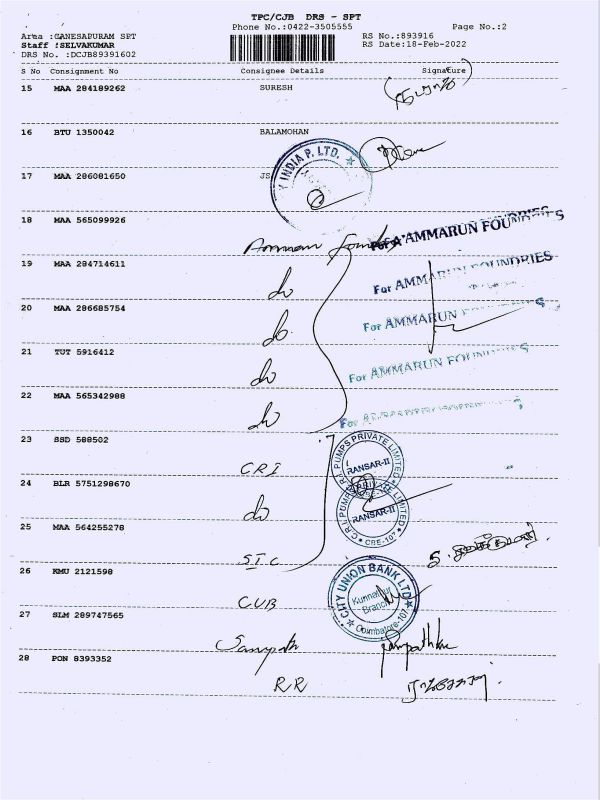 TPC/CJB DRS - SPT
Phone No.:0422-3505555 Page No.:2
Area :GANESAPURAM SPT RS No.:893916
Staff :SELVAKUMAR RS Date:18-Feb-2022
DRS No. :DCJB89391602
S No Consignment No Consignee Details Signature
15 MAA 284189262 SURESH
16 BTU 1350042 BALAMOHAN
INDIA P. LTD.
17 MAA 286081650 JS
18 MAA 565099926
Amman For AMMARUN FOUNDRIES
19 MAA 284714611
do For AMMARUN FOUNDRIES
20 MAA 286685754
do For AMMARUN
21 TUT 5916412
do For AMMARUN FOUNDRIES
22 MAA 565342988
do For
23 SSD 588502
CRI
R.I. PUMPS PRIVATE LIMITED
RANSAR-II
24 BLR 5751298670
do
R.I. PUMPS PRIVATE LIMITED
RANSAR-II
CBE-107
25 MAA 564255278
STC
26 KMU 2121598
CUB
CITY UNION BANK LTD
Kunnathur
Branch
Coimbatore-107
27 SLM 289747565
Sampath
28 PON 8393352
RR